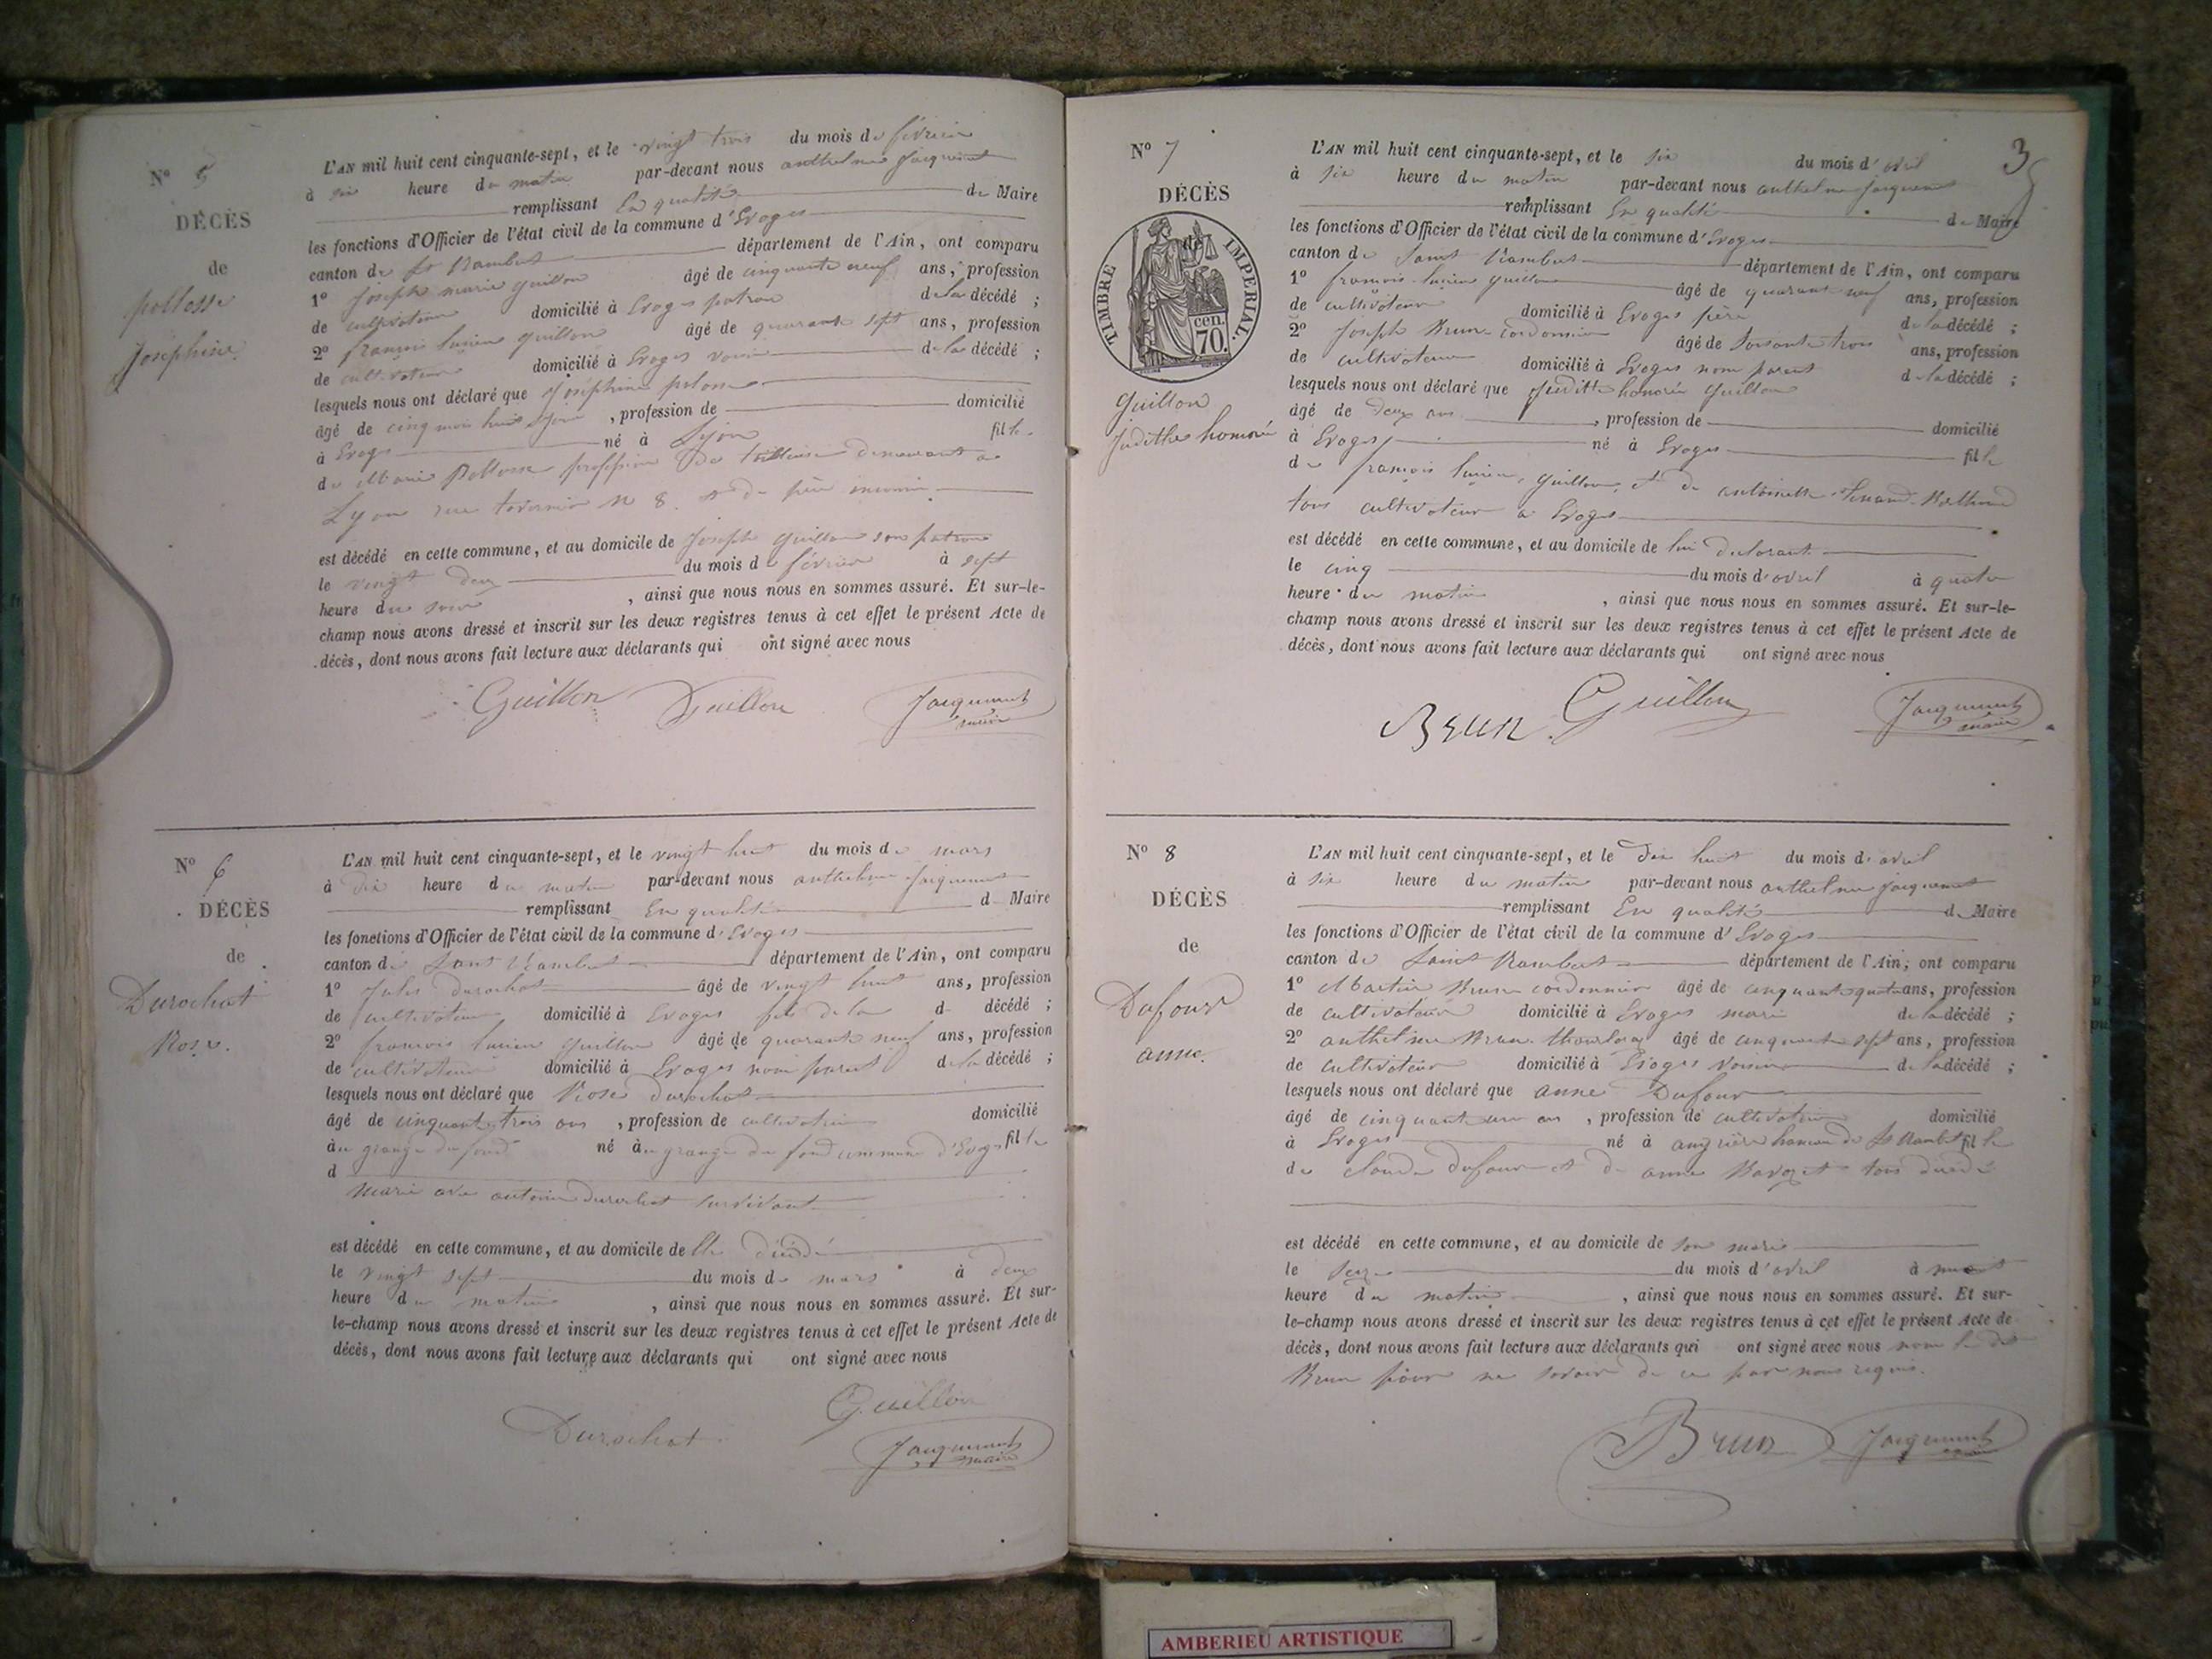 N° 5
DÉCÈS
de
pollosse
Joséphine
L'AN mil huit cent cinquante-sept, et le vingt trois du mois de février
à six heure du matin par-devant nous anthelme Jacquemet
remplissant En qualité de Maire
les fonctions d'Officier de l'état civil de la commune d'Evoges
canton de St Rambert département de l'Ain, ont comparu
1° Joseph marie guillon âgé de cinquante neuf ans, profession
de cultivateur domicilié à Evoges patron de la décédé ;
2° françois lucien guillon âgé de quarante sept ans, profession
de cultivateur domicilié à Evoges voisin de la décédé ;
lesquels nous ont déclaré que Joséphine polosse
âgé de cinq mois huit jour , profession de domicilié
à Evoges né à Lyon fille
de Marie Pollosse profession de tailleuse demeurant a
Lyon rue N 8 et de père inconnu
est décédé en cette commune, et au domicile de Joseph guillon son patron
le vingt deux du mois de février à sept
heure du soir , ainsi que nous nous en sommes assuré. Et sur-le-
champ nous avons dressé et inscrit sur les deux registres tenus à cet effet le présent Acte de
décès, dont nous avons fait lecture aux déclarants qui ont signé avec nous
Guillon Guillon Jacquemet
maire
N° 6
DÉCÈS
de
Durochat
Rose.
L'AN mil huit cent cinquante-sept, et le vingt huit du mois de mars
à dix heure du matin par-devant nous anthelme Jacquemet
remplissant En qualité d Maire
les fonctions d'Officier de l'état civil de la commune d'Evoges
canton de Saint Rambert département de l'Ain, ont comparu
1° Jules durochat âgé de vingt huit ans, profession
de cultivateur domicilié à Evoges fils de la d décédé ;
2° francois lucien guillon âgé de quarante neuf ans, profession
de cultivateur domicilié à Evoges non parent de la décédé ;
lesquels nous ont déclaré que Rose durochat
âgé de cinquante trois ans , profession de cultivatrice domicilié
à grange du fond né à grange du fond commune d'Evoges fille
d
marie ave antoine durochat survivant
est décédé en cette commune, et au domicile de décédé
le vingt sept du mois de mars à deux
heure du matin , ainsi que nous nous en sommes assuré. Et sur-
le-champ nous avons dressé et inscrit sur les deux registres tenus à cet effet le présent Acte de
décès, dont nous avons fait lecture aux déclarants qui ont signé avec nous
Guillon
Durochat. Jacquemet
maire
3
N° 7
DÉCÈS
TIMBRE IMPERIAL.
cen.
70.
guillon
judithe honorée
L'AN mil huit cent cinquante-sept, et le six du mois d'avril
à six heure du matin par-devant nous anthelme Jacquemet
remplissant En qualité de Maire
les fonctions d'Officier de l'état civil de la commune d'Evoges
canton de Saint Rambert département de l'Ain, ont comparu
1° francois lucien guillon âgé de quarante neuf ans, profession
de cultivateur domicilié à Evoges père de la décédé ;
2° Joseph Brun cordonnier âgé de soixante trois ans, profession
de cultivateur domicilié à Evoges non parent de la décédé ;
lesquels nous ont déclaré que Juditte honorée guillon
âgé de deux ans , profession de domicilié
à Evoges né à Evoges fille
de françois lucien guillon, et de antoinette
tous cultivateur a Evoges
est décédé en cette commune, et au domicile de lui declarant
le cinq du mois d'avril à quatre
heure du matin , ainsi que nous nous en sommes assuré. Et sur-le-
champ nous avons dressé et inscrit sur les deux registres tenus à cet effet le présent Acte de
décès, dont nous avons fait lecture aux déclarants qui ont signé avec nous
Brun. Guillon Jacquemet
maire
N° 8
DÉCÈS
de
Dufour
anne.
L'AN mil huit cent cinquante-sept, et le dix huit du mois d'avril
à six heure du matin par-devant nous anthelme Jacquemet
remplissant En qualité de Maire
les fonctions d'Officier de l'état civil de la commune d'Evoges
canton de Saint Rambert département de l'Ain, ont comparu
1° Martin Brun cordonnier âgé de cinquante quatre ans, profession
de cultivateur domicilié à Evoges mari de la décédé ;
2° anthelme Brun âgé de cinquante sept ans, profession
de cultivateur domicilié à Evoges voisin de la décédé ;
lesquels nous ont déclaré que anne Dufour
âgé de cinquante un an , profession de cultivatrice domicilié
à Evoges né à de St Rambert fille
de claude dufour et de anne tous décédé
est décédé en cette commune, et au domicile de son mari
le seize du mois d'avril à
heure du matin , ainsi que nous nous en sommes assuré. Et sur-
le-champ nous avons dressé et inscrit sur les deux registres tenus à cet effet le présent Acte de
décès, dont nous avons fait lecture aux déclarants qui ont signé avec nous non le dt
Brun pour ne savoir de ce par nous requis.
Brun Jacquemet
AMBERIEU ARTISTIQUE